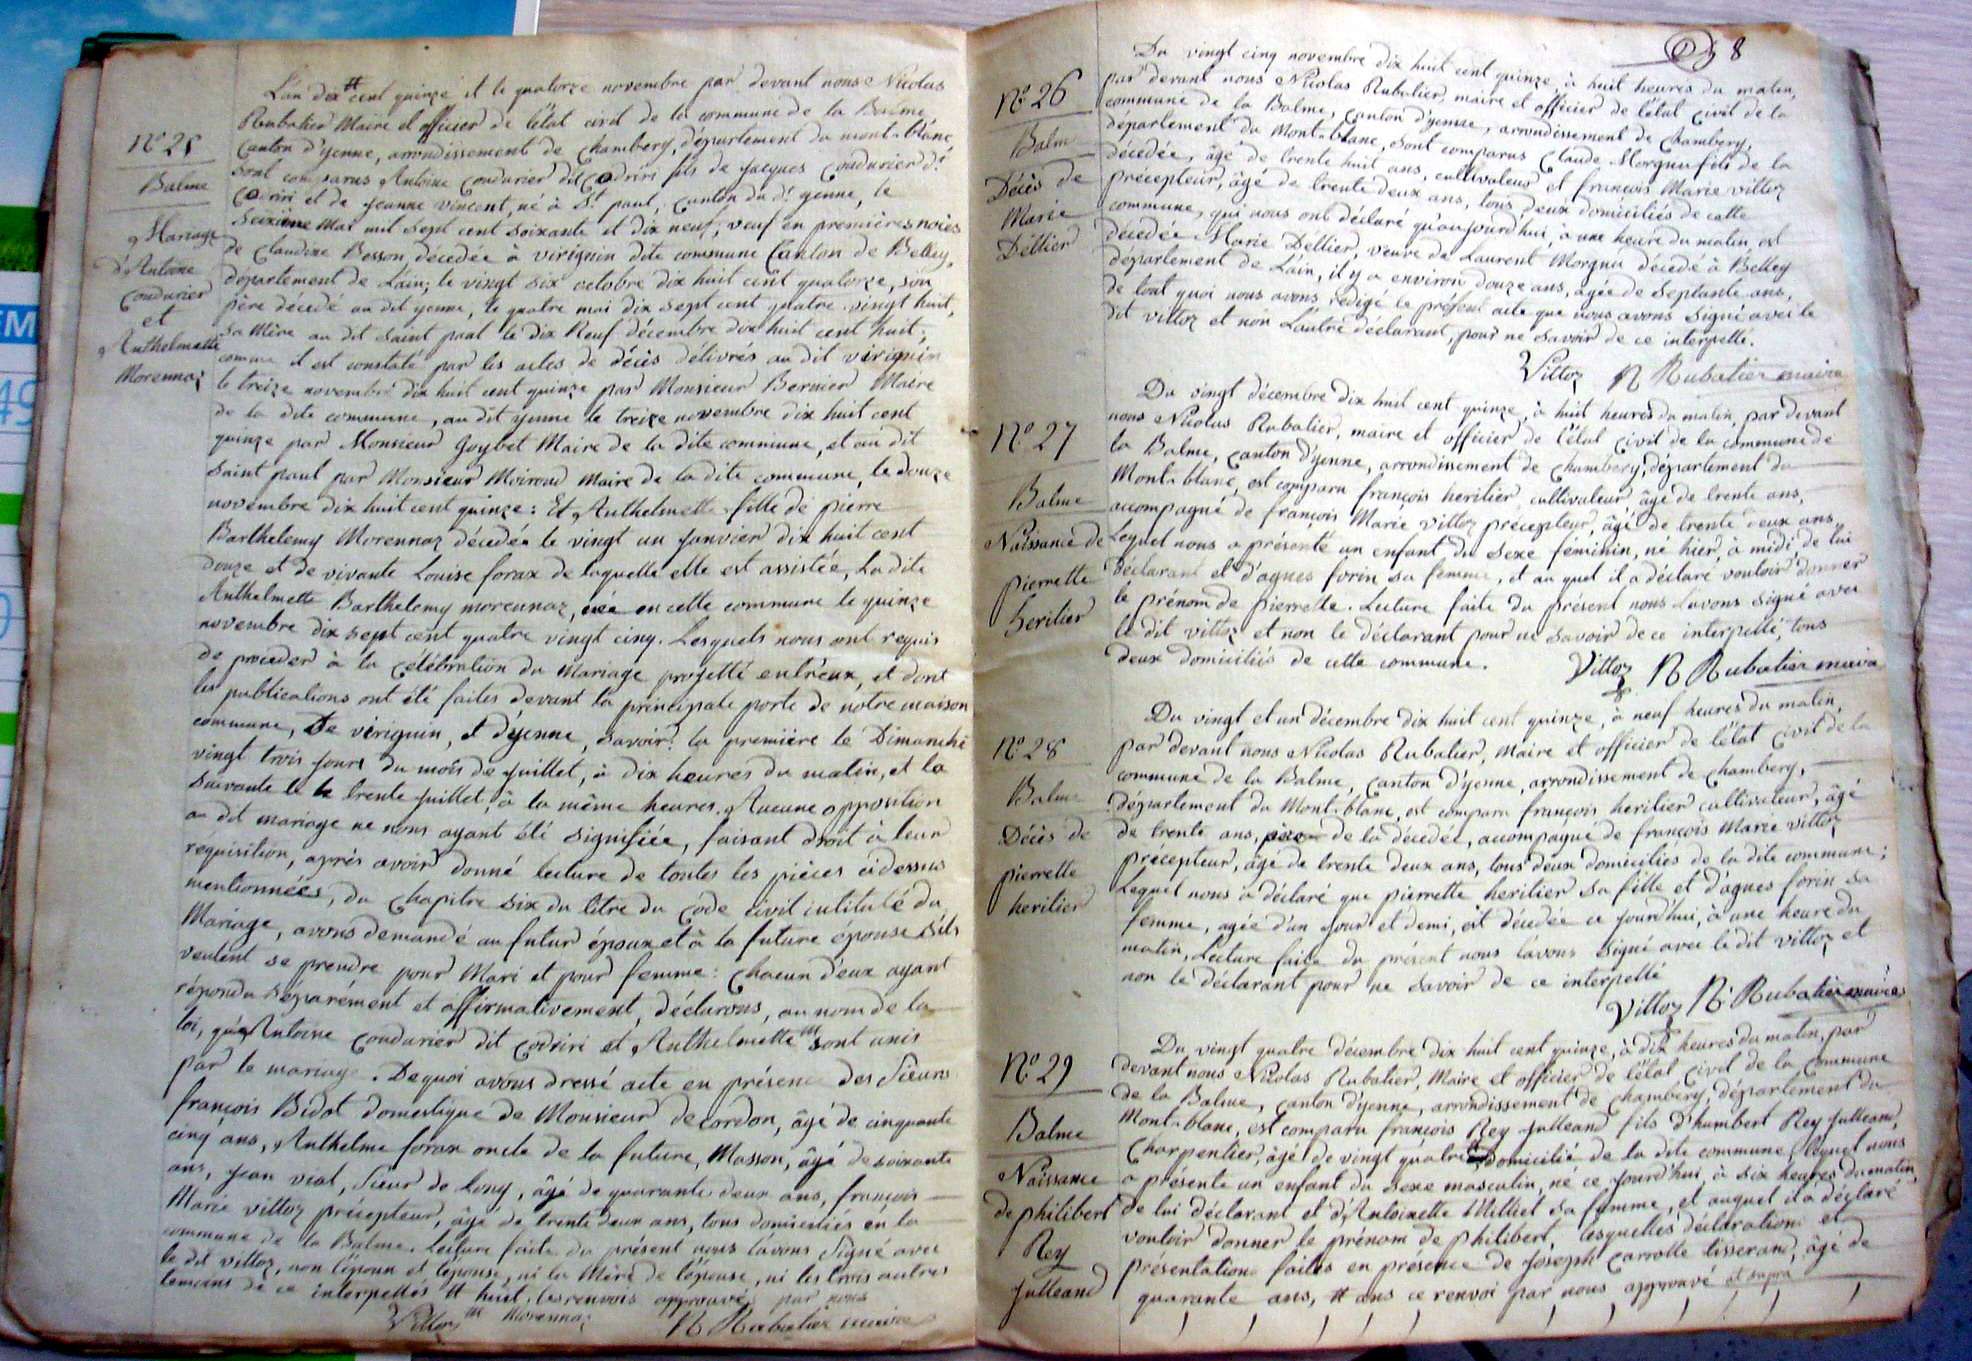 L'an dix # cent quinze et le quatorze novembre par devant nous Nicolas
Rubatier Maire et officier de l'état civil de la commune de la Balme
Canton d'yenne, arrondissement de Chambery, département du mont-blanc,
sont comparus Antoine Coudurier dit Codriri fils de Jacques Coudurier dt
Codriri et de Jeanne Vincent, né à St paul, Canton du dt yenne, le
Seizième Mai mil sept cent soixante et dix neuf, veuf en premières noces
de Claudine Besson, décédée à virignin dite commune Canton de Belley,
département de Lain, le vingt six octobre dix huit cent quatorze, son
père décédé au dit yenne, le quatre mai dix sept cent quatre vingt huit,
sa Mère au dit saint paul le dix Neuf décembre dix huit cent huit;
comme il est constaté par les actes de décès délivrés au dit virignin
le treize novembre dix huit cent quinze par Monsieur Bernier Maire
de la dite commune, au dit yenne le treize novembre dix huit cent
quinze par Monsieur Goybet Maire de la dite commune, et au dit
saint paul par Monsieur Moiroud Maire de la dite commune, le douze
novembre dix huit cent quinze: Et Anthelmette fille de pierre
Barthelemy Morennaz décédée le vingt un janvier dix huit cent
douze et de vivante Louise forax de laquelle elle est assistée, La dite
Anthelmette Barthelemy morennaz, née en cette commune le quinze
novembre dix sept cent quatre vingt cinq. Lesquels nous ont requis
de procéder à la célébration du Mariage projetté entr'eux, et dont
les publications ont été faites devant la principale porte de notre maison
commune, De virignin, et d'yenne, savoir: la première le Dimanche
vingt trois jours du mois de juillet, à dix heures du matin, et la
suivante le trente juillet, à la même heures. Aucune opposition
au dit mariage ne nous ayant été signifiée, faisant droit à leur
requisition, après avoir donné lecture de toutes les pièces cidessus
mentionnées, du chapitre six du titre du Code civil intitulé du
Mariage, avons demandé au futur époux et à la future épouse s'ils
veulent se prendre pour Mari et pour femme: chacun d'eux ayant
répondu séparément et affirmativement, déclarons, au nom de la
loi, qu'Antoine Coudurier dit codriri et Anthelmette m sont unis
par le mariage. De quoi avons dressé acte en présence des Sieurs
françois Bidot domestique de Monsieur de Cordon, âgé de cinquante
cinq ans, Anthelme forax oncle de la future, Masson, âgé de soixante
ans, Jean vial, Sieur de Long, âgé de quarante deux ans, françois
Marie vittoz précepteur, âgé de trente deux ans, tous domiciliés en la
commune de la Balme. Lecture faite du présent nous l'avons signé avec
le dit vittoz, non l'époux et l'épouse, ni la Mère de l'épouse, ni les trois autres
temoins de ce interpellés # huit. les renvois approuvés par nous
Vittoz m Morennaz N Rubatier maire
N° 25
Balme
Mariage
d'Antoine
Coudurier
et
Anthelmette
Morennaz
8
Du vingt cinq novembre dix huit cent quinze, à huit heures du matin,
par devant nous Nicolas Rubatier, maire et officier de l'état civil de la
commune de la Balme, Canton d'yenne, arrondissement de Chambery,
département du Mont-blanc, sont comparus Claude Morgnu fils de la
décédée, âgé de trente huit ans, cultivateur et françois Marie vittoz
Précepteur, âgé de trente deux ans, tous deux domiciliés de cette
commune, qui nous ont déclaré qu'aujourd'hui, à une heure du matin, est
décédée Marie Dellier, veuve de Laurent Morgnu décédé à Belley
departement de L'ain, il y a environ douze ans, agée de septante ans,
de tout quoi nous avons redigé le présent acte que nous avons signé avec le
dit vittoz et non L'autre déclarant, pour ne savoir de ce interpellé.
Vittoz N Rubatier maire
N° 26
Balme
Décès de
Marie
Dellier
Du vingt décembre dix huit cent quinze, à huit heures du matin, par devant
nous Nicolas Rubatier, maire et officier de l'état civil de la commune de
la Balme, Canton d'yenne, arrondissement de Chambery, département du
Mont-blanc, est comparu françois heritier cultivateur âgé de trente ans,
accompagné de françois Marie vittoz précepteur, âgé de trente deux ans,
Lequel nous a présenté un enfant du sexe féminin, né hier, à midi, de lui
déclarant et d'agnes forin sa femme, et au quel il a déclaré vouloir donner
le prénom de pierrette. Lecture faite du présent nous l'avons signé avec
le dit vittoz et non le déclarant pour ne savoir de ce interpellé, tous
deux domiciliés de cette commune.
Vittoz N Rubatier maire
N° 27
Balme
Naissance de
pierrette
heritier
Du vingt et un décembre dix huit cent quinze, à neuf heures du matin,
par devant nous Nicolas Rubatier, Maire et officier de l'état civil de la
commune de la Balme, Canton d'yenne, arrondissement de Chambery,
département du Mont-blanc, est comparu françois heritier cultivateur, âgé
de trente ans, père de la décédée, accompagné de françois Marie vittoz
précepteur, âgé de trente deux ans, tous deux domiciliés de la dite commune;
Lequel nous a déclaré que pierrette heritier sa fille et d'agnes forin sa
femme, agée d'un jour et demi, est décédée ce jourd'hui, à une heure du
matin, Lecture faite du présent nous l'avons signé avec le dit vittoz et
non le déclarant pour ne savoir de ce interpellé
Vittoz N Rubatier maire
N° 28
Balme
Décès de
pierrette
heritier
Du vingt quatre décembre dix huit cent quinze, à dix heures du matin, par
devant nous Nicolas Rubatier, Maire et officier de l'état civil de la commune
de la Balme, Canton d'yenne, arrondissement de Chambery, département du
Mont-blanc, est comparu françois Rey Julleand fils d'humbert Rey Julleand,
Charpentier, âgé de vingt quatre # domicilié de la dite commune, lequel nous
a présenté un enfant du sexe masculin, né ce jourd'hui, à six heures du matin
de lui déclarant et d'Antoinette Milliet sa femme, et auquel il a déclaré
vouloir donner le prénom de philibert, lesquelles déclaration et
présentation faites en présence de Joseph Carrotte tisserand, âgé de
quarante ans, # ans ce renvoi par nous approuvé et supra
N° 29
Balme
Naissance
de philibert
Rey
Julleand